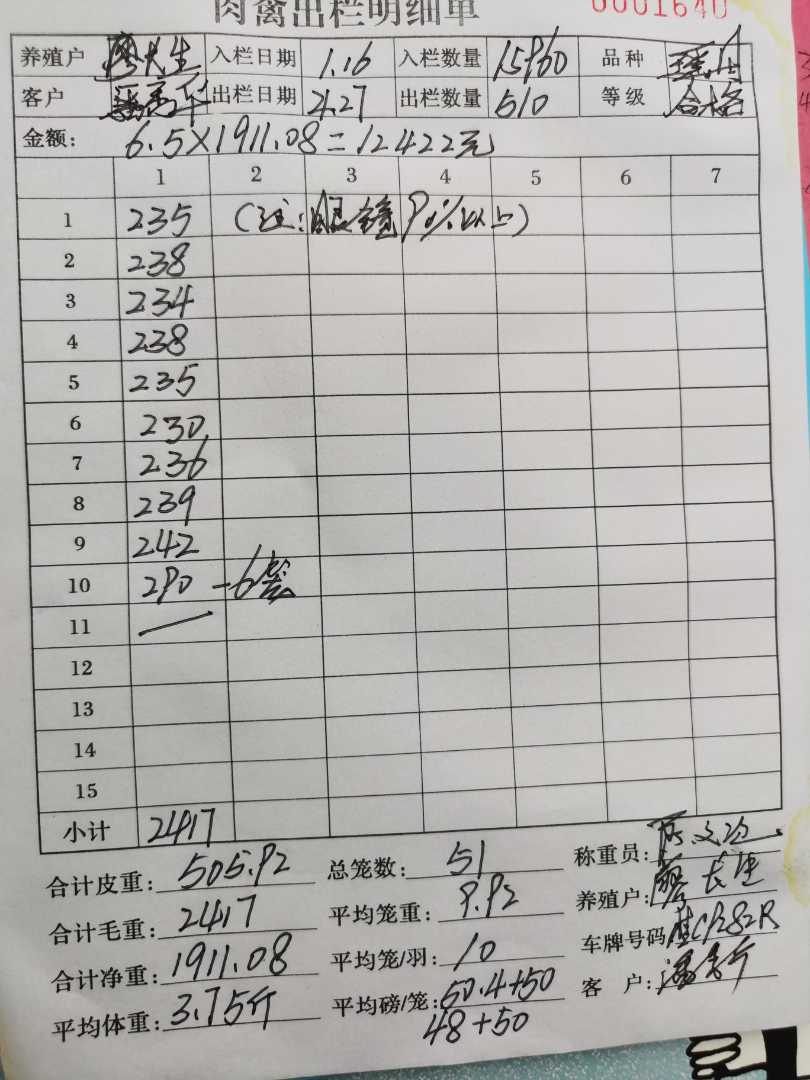 肉禽出栏明细单 0001640
养殖户 廖长生 入栏日期 1.16 入栏数量 15960 品种
客户 出栏日期 4.27 出栏数量 510 等级 合格
金额: 6.5×1911.08=12422元
1 2 3 4 5 6 7
1 235 (注:眼镜90%以上)
2 238
3 234
4 238
5 235
6 230
7 236
8 239
9 242
10 290 —6笼
11 —
12
13
14
15
小计 2417
合计皮重: 505.92 总笼数: 51 称重员:
合计毛重: 2417 平均笼重: 9.92 养殖户: 廖长生
合计净重: 1911.08 平均笼/羽: 10 车牌号码
平均体重: 3.75斤 平均磅/笼: 50.4+50 客 户:
48+50